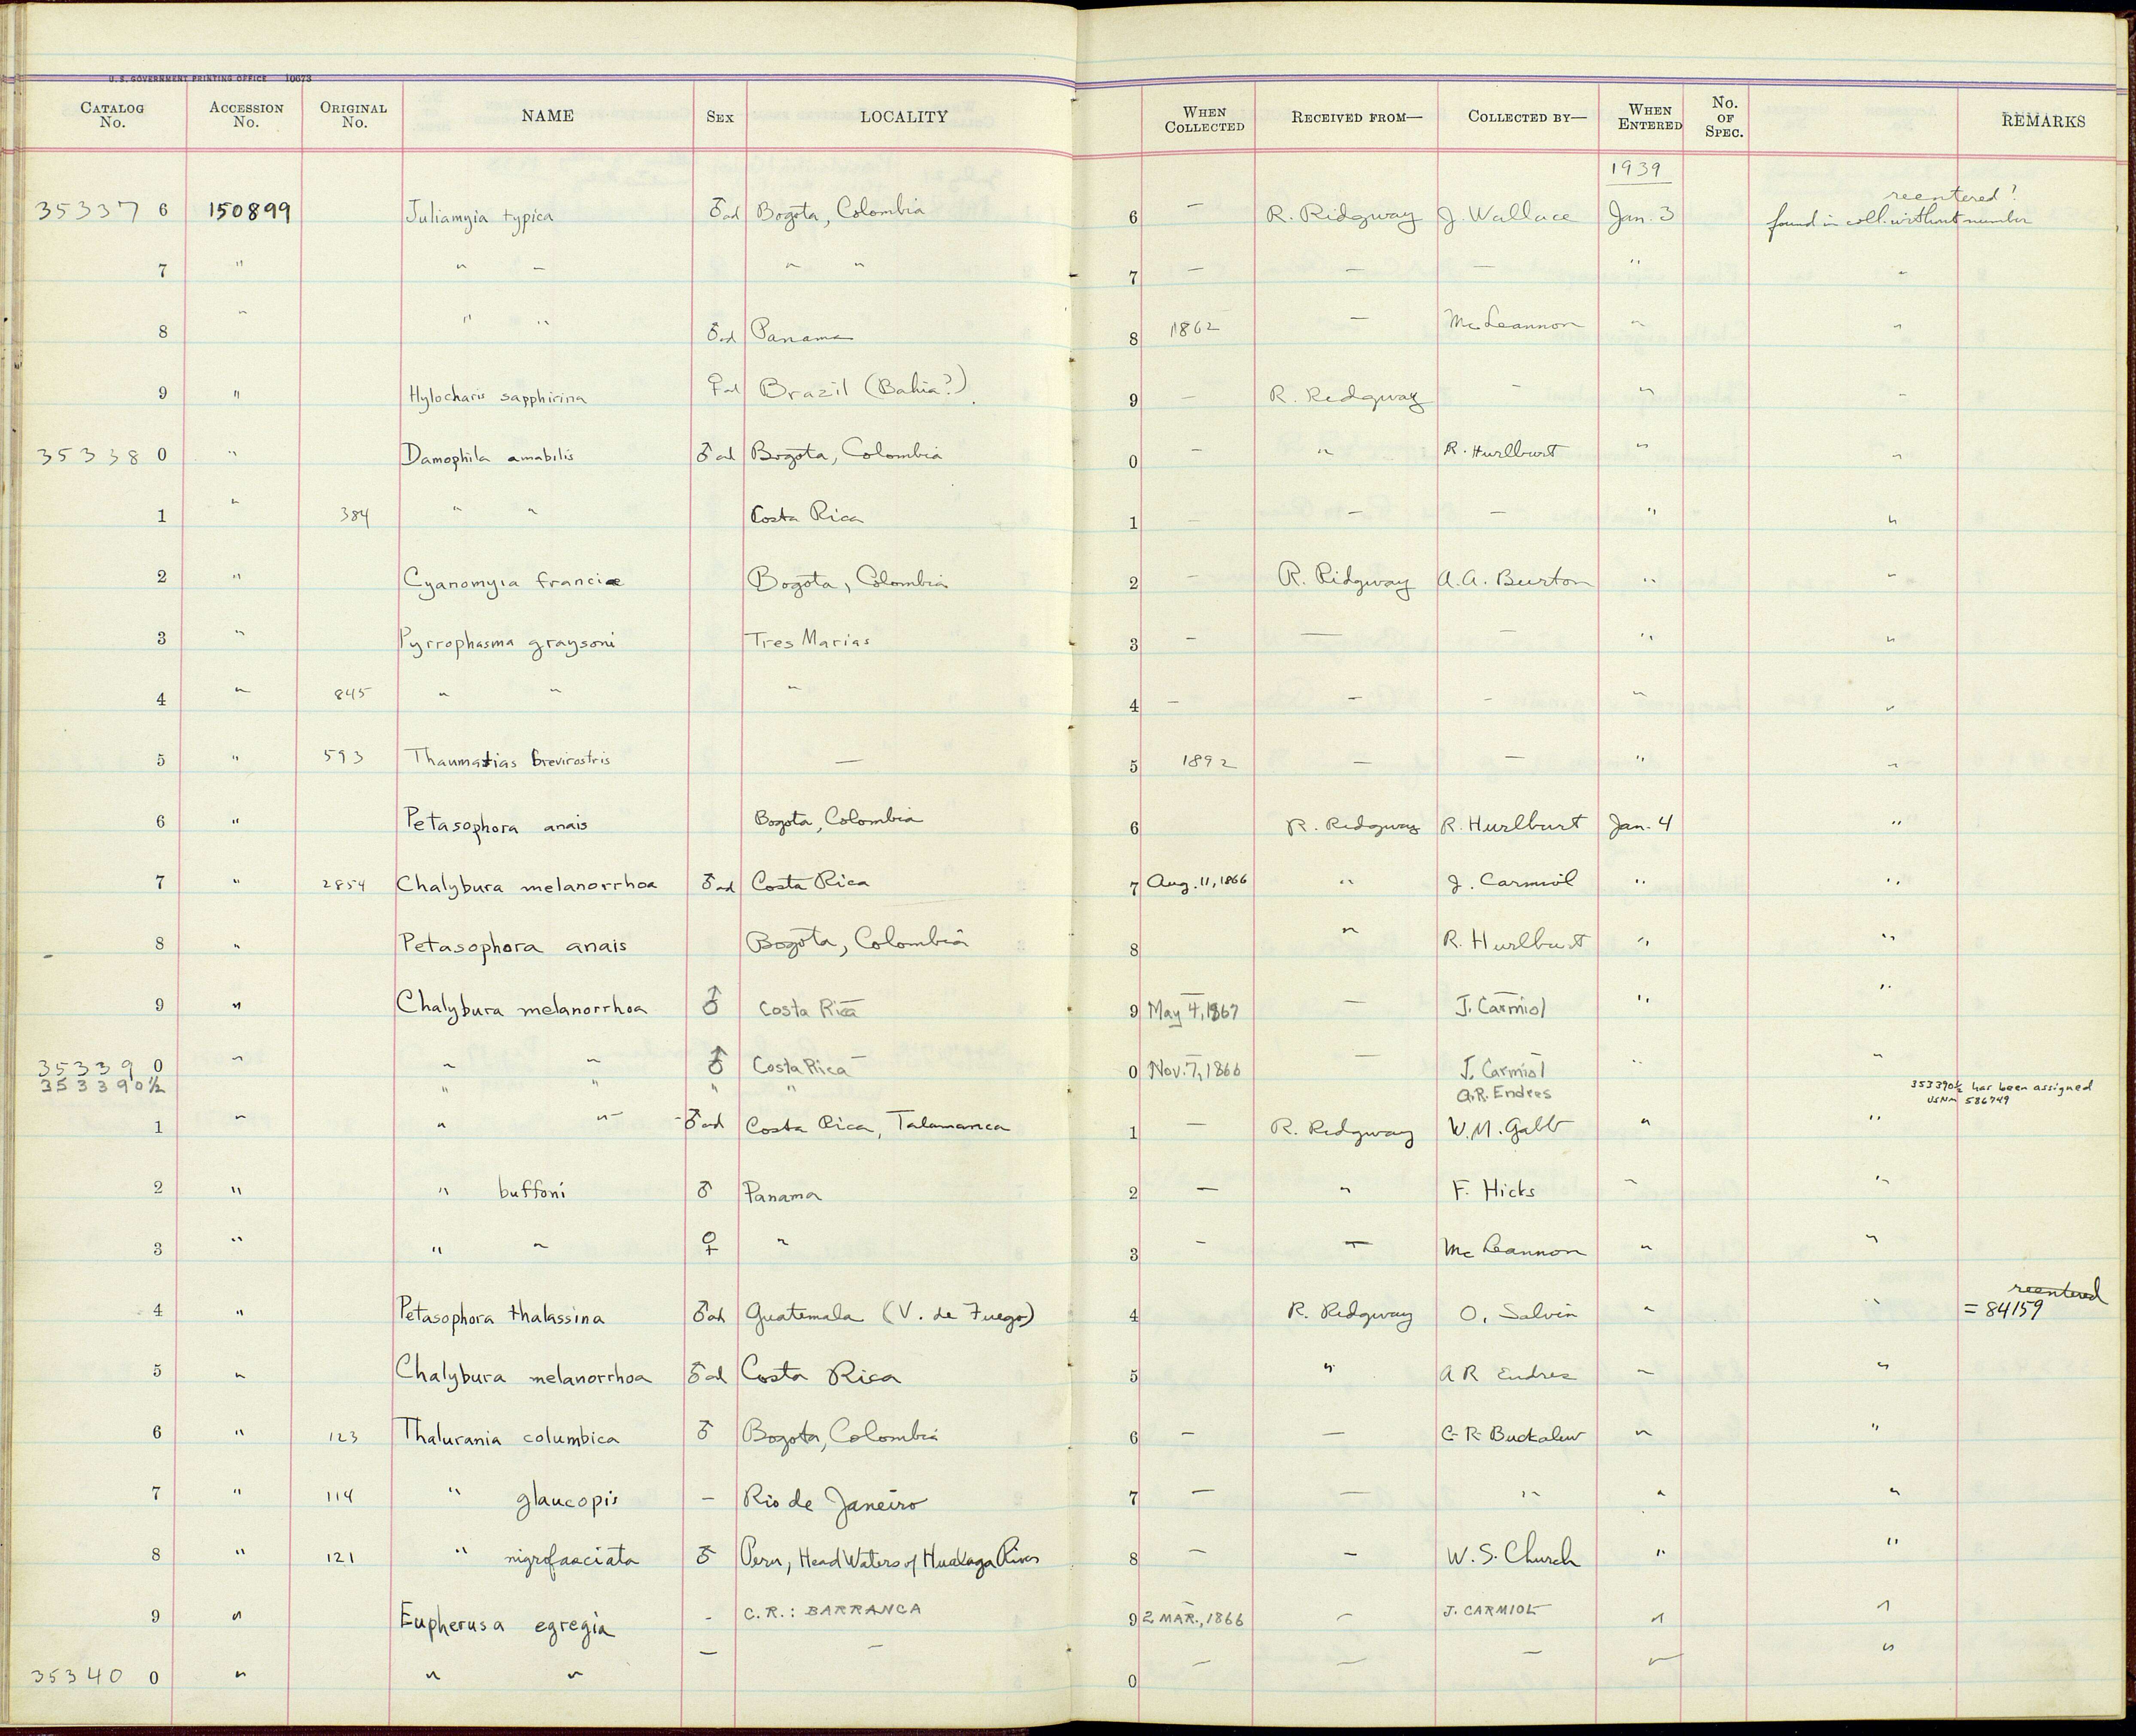 U.S. GOVERNMENT PRINTING OFFICE 10673
CATALOG No. ACCESSION No. ORIGINAL No. NAME SEX LOCALITY WHEN COLLECTED RECEIVED FROM— COLLECTED BY— WHEN ENTERED No. OF SPEC. REMARKS
1939
reentered!
35337 6 150899 Juliamyia typica ♂ad Bogota, Colombia 6 — R. Ridgway J. Wallace Jan. 3 found in coll. without number
7 " " " " " 7 — — — " "
8 " " " ♂ad Panama 8 1862 — McLeannon " "
9 " Hylocharis sapphirina ♀ad Brazil (Bahia?) 9 — R. Ridgway — " "
35338 0 " Damophila amabilis ♂ad Bogota, Colombia 0 — " R. Hurlburt " "
1 " 384 " " Costa Rica 1 — — — " "
2 " Cyanomyia franciæ Bogota, Colombia 2 — R. Ridgway A.A. Burton " "
3 " Pyrrophasma graysoni Tres Marias 3 — — — " "
4 " 845 " " " 4 — — — " "
5 " 593 Thaumatias brevirostris — 5 1892 — — " "
6 " Petasophora anais Bogota, Colombia 6 R. Ridgway R. Hurlburt Jan. 4 "
7 " 2854 Chalybura melanorrhoa ♂ad Costa Rica 7 Aug. 11, 1866 " J. Carmiol " "
8 " Petasophora anais Bogota, Colombia 8 " R. Hurlburt " "
9 " Chalybura melanorrhoa ♂ Costa Rica 9 May 4, 1867 — J. Carmiol " "
35339 0 " " " ♂ Costa Rica 0 Nov. 7, 1866 — J. Carmiol " "
35339 0½ " " " " A.R. Endres 353390½ has been assigned
USNM 586749
1 " " " ♂ad Costa Rica, Talamanca 1 — R. Ridgway W.M. Gabb " "
2 " " buffoni ♂ Panama 2 — " F. Hicks " "
3 " " " ♀ " 3 — — McLeannon " "
reentered
4 " Petasophora thalassina ♂ad Guatemala (V. de Fuego) 4 R. Ridgway O. Salvin " " = 84159
5 " Chalybura melanorrhoa ♂ad Costa Rica 5 " A R Endres " "
6 " 123 Thalurania columbica ♂ Bogota, Colombia 6 — — C.R. Buckalew " "
7 " 114 " glaucopis — Rio de Janeiro 7 — — " " "
8 " 121 " nigrofasciata ♂ Peru, Head Waters of Huallaga River 8 — — W.S. Church " "
9 " Eupherusa egregia - C.R.: BARRANCA 9 2 MAR., 1866 — J. CARMIOL " "
35340 0 " " " — — 0 — — — " "